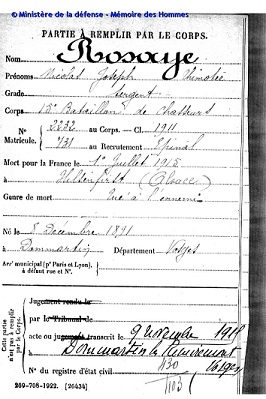 © Ministère de la défense - Mémoire des Hommes
PARTIE À REMPLIR PAR LE CORPS.
Nom Rosaye
Prénoms Nicolas Joseph Thimotée
Grade Sergent
Corps 15e Bataillon de Chasseurs
N° 3232 au Corps. — Cl. 1911
Matricule. 731 au Recrutement Epinal
Mort pour la France le 1er Juillet 1915
à Hilsenfirst (Alsace)
Genre de mort Tué à l'ennemi
Né le 8 Décembre 1891
à Dommartin Département Vosges
Arrt municipal (pr Paris et Lyon), à défaut rue et N°.
Cette partie n'est pas à remplir par le Corps.
Jugement rendu le
par le Tribunal de
acte ou jugement transcrit le 9 Novembre 1915
à Dommartin les Remiremont
Vosges
N° du registre d'état civil 430
269-708-1922. [26434]